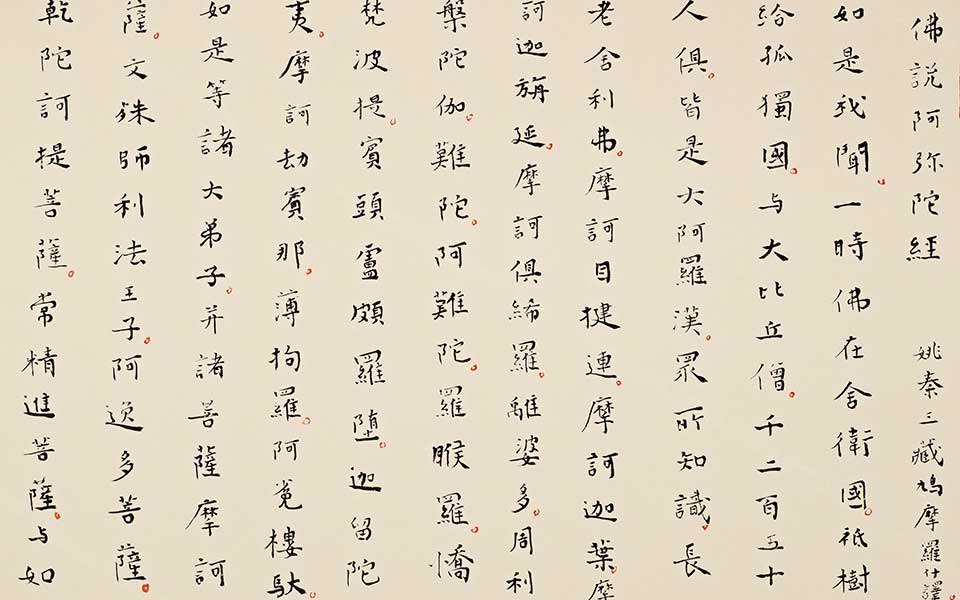 佛説阿弥陀經 姚秦三藏鳩摩羅什譯。
如是我聞。一時佛在舍衛國。祇樹
給孤獨園。与大比丘僧。千二百五十
人俱。皆是大阿羅漢。眾所知識。長
老舍利弗。摩訶目揵連。摩訶迦葉。摩
訶迦旃延。摩訶俱絺羅。離婆多。周利
槃陀伽。難陀。阿難陀。羅睺羅。憍
梵波提。賓頭盧頗羅墮。迦留陀
夷。摩訶劫賓那。薄拘羅。阿㝹樓馱。
如是等諸大弟子。并諸菩薩摩訶
薩。文殊師利法王子。阿逸多菩薩。
乾陀訶提菩薩。常精進菩薩。与如